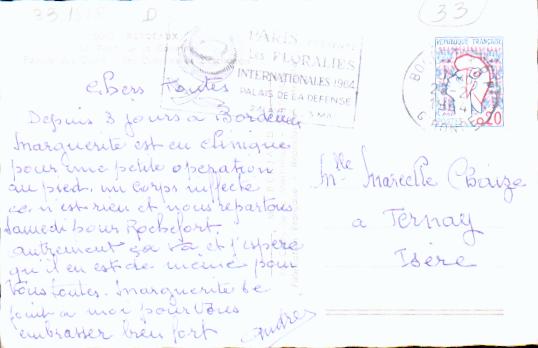 33
D
33
PARIS
Les FLORALIES
INTERNATIONALES 1964
PALAIS DE LA DEFENSE
REPUBLIQUE FRANÇAISE
0,20
chers Toutes
Depuis 3 jours à Bordeaux
Marguerite est en clinique
pour une petite opération
au pied. un corps infecté
ce n'est rien et nous repartons
samedi pour Rochefort.
autrement ça va et j'espère
qu'il en est de même pour
vous toutes. Marguerite se
joint a moi pour vous
embrasser bien fort
Mlle Marcelle
a Ternay
Isère